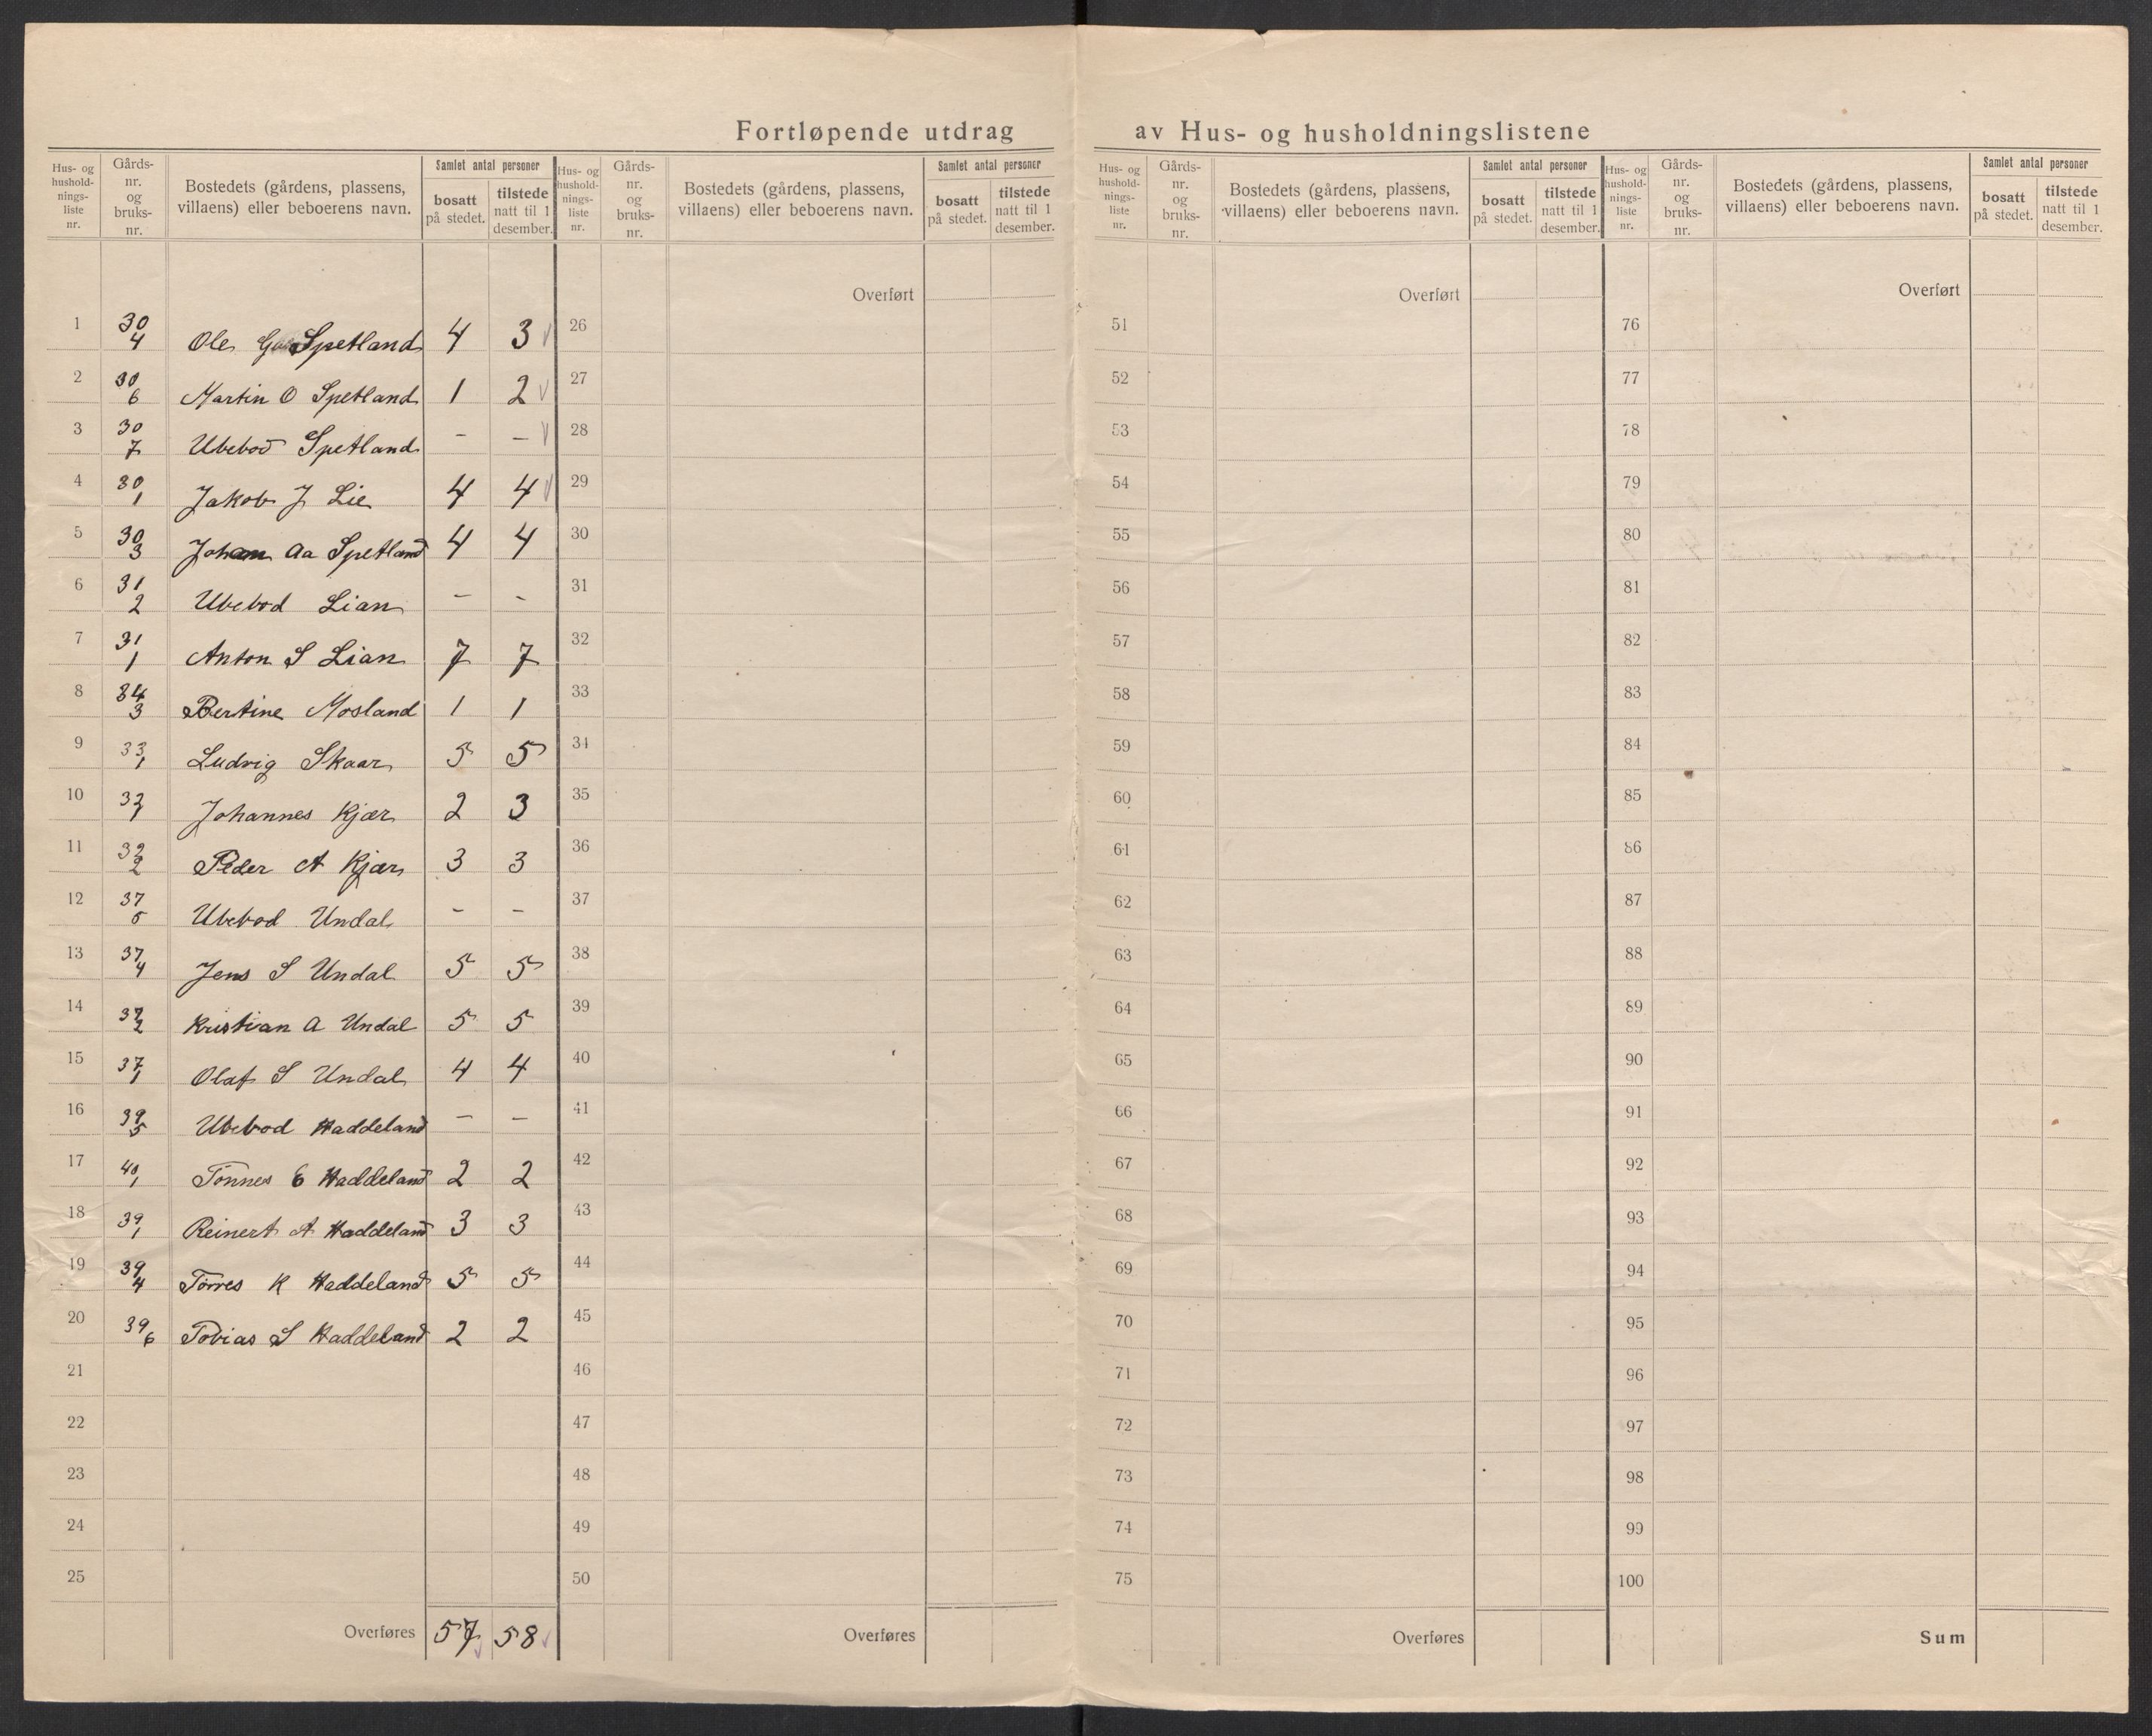 Fortløpende utdrag av Hus- og husholdningslistene
Hus- og
hushold-
nings-
liste
nr.
Gårds-
nr.
og
bruks-
nr.
Bostedets (gårdens, plassens,
villaens) eller beboerens navn.
Samlet antal personer
bosatt
på stedet.
tilstede
natt til 1
desember.
Hus- og
hushold-
nings-
liste
nr.
Gårds-
nr.
og
bruks-
nr.
Bostedets (gårdens, plassens,
villaens) eller beboerens navn.
Samlet antal personer
bosatt
på stedet.
tilstede
natt til 1
desember.
Hus- og
hushold-
nings-
liste
nr.
Gårds-
nr.
og
bruks-
nr.
Bostedets (gårdens, plassens,
villaens) eller beboerens navn.
Samlet antal personer
bosatt
på stedet.
tilstede
natt til 1
desember.
Hus- og
hushold-
nings-
liste
nr.
Gårds-
nr.
og
bruks-
nr.
Bostedets (gårdens, plassens,
villaens) eller beboerens navn.
Samlet antal personer
bosatt
på stedet.
tilstede
natt til 1
desember.
1 30/4 Ole Spetland 4 3
2 30/6 Martin O Spetland 1 2
3 30/7 Ubebod Spetland - -
4 30/1 Jakob J Lie 4 4
5 30/3 Johan Aa Spetland 4 4
6 31/2 Ubebod Lian - -
7 31/1 Anton S Lian 7 7
8 34/3 Bertine Mosland 1 1
9 33/1 Ludvig Skaar 5 5
10 32/1 Johannes Kjær 2 3
11 32/2 Peder A Kjær 3 3
12 37/5 Ubebod Undal - -
13 37/4 Jens S Undal 5 5
14 37/2 Kristian A Undal 5 5
15 37/1 Olaf S Undal 4 4
16 39/5 Ubebod Haddeland - -
17 40/1 Tønnes E Haddeland 2 2
18 39/1 Reinert A Haddeland 3 3
19 39/4 Tørres K Haddeland 5 5
20 39/6 Tobias S Haddeland 2 2
21
22
23
24
25
Overføres 57 58
Overført
26
27
28
29
30
31
32
33
34
35
36
37
38
39
40
41
42
43
44
45
46
47
48
49
50
Overføres
Overført
51
52
53
54
55
56
57
58
59
60
61
62
63
64
65
66
67
68
69
70
71
72
73
74
75
Overføres
Overført
76
77
78
79
80
81
82
83
84
85
86
87
88
89
90
91
92
93
94
95
96
97
98
99
100
Sum